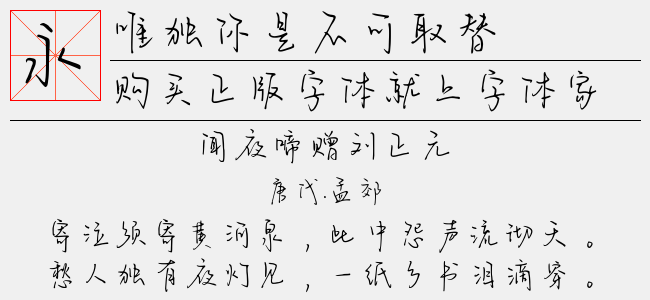 永
唯独你是不可取替
购买正版字体就上字体家
闻夜啼赠刘正元
唐代.孟郊
寄泣须寄黄河泉，此中怨声流彻天。
愁人独有夜灯见，一纸乡书泪滴穿。